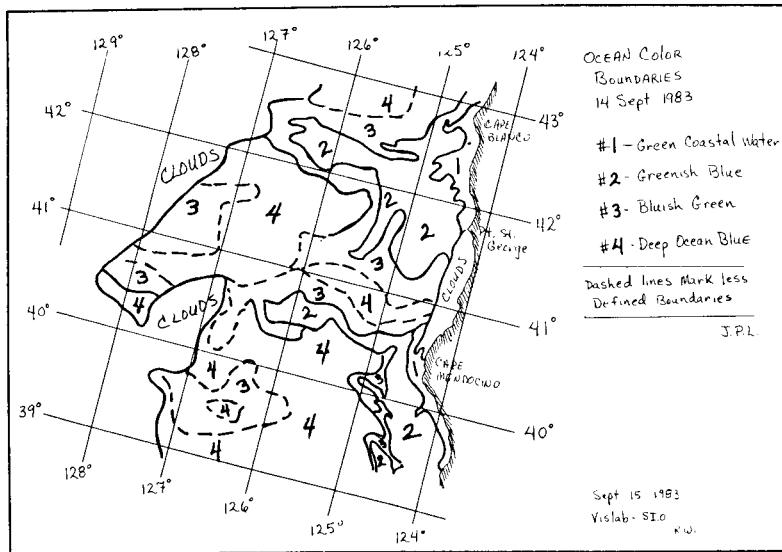 129°
128°
127°
126°
125°
124°
42°
43°
41°
42°
40°
41°
39°
40°
128°
127°
126°
125°
124°
CLOUDS
CLOUDS
CLOUDS
CAPE
BLANCO
Pt. St.
George
CAPE
MENDOCINO
4
3
2
1
3
4
2
2
3
3
4
3
4
2
4
4
3
4
4
4
3
2
3
2
OCEAN COLOR
BOUNDARIES
14 Sept 1983
#1 - Green Coastal Water
#2 - Greenish Blue
#3 - Bluish Green
#4 - Deep Ocean Blue
Dashed lines Mark less
Defined Boundaries
J.P.L.
Sept 15 1983
Vislab - SIO
R.W.